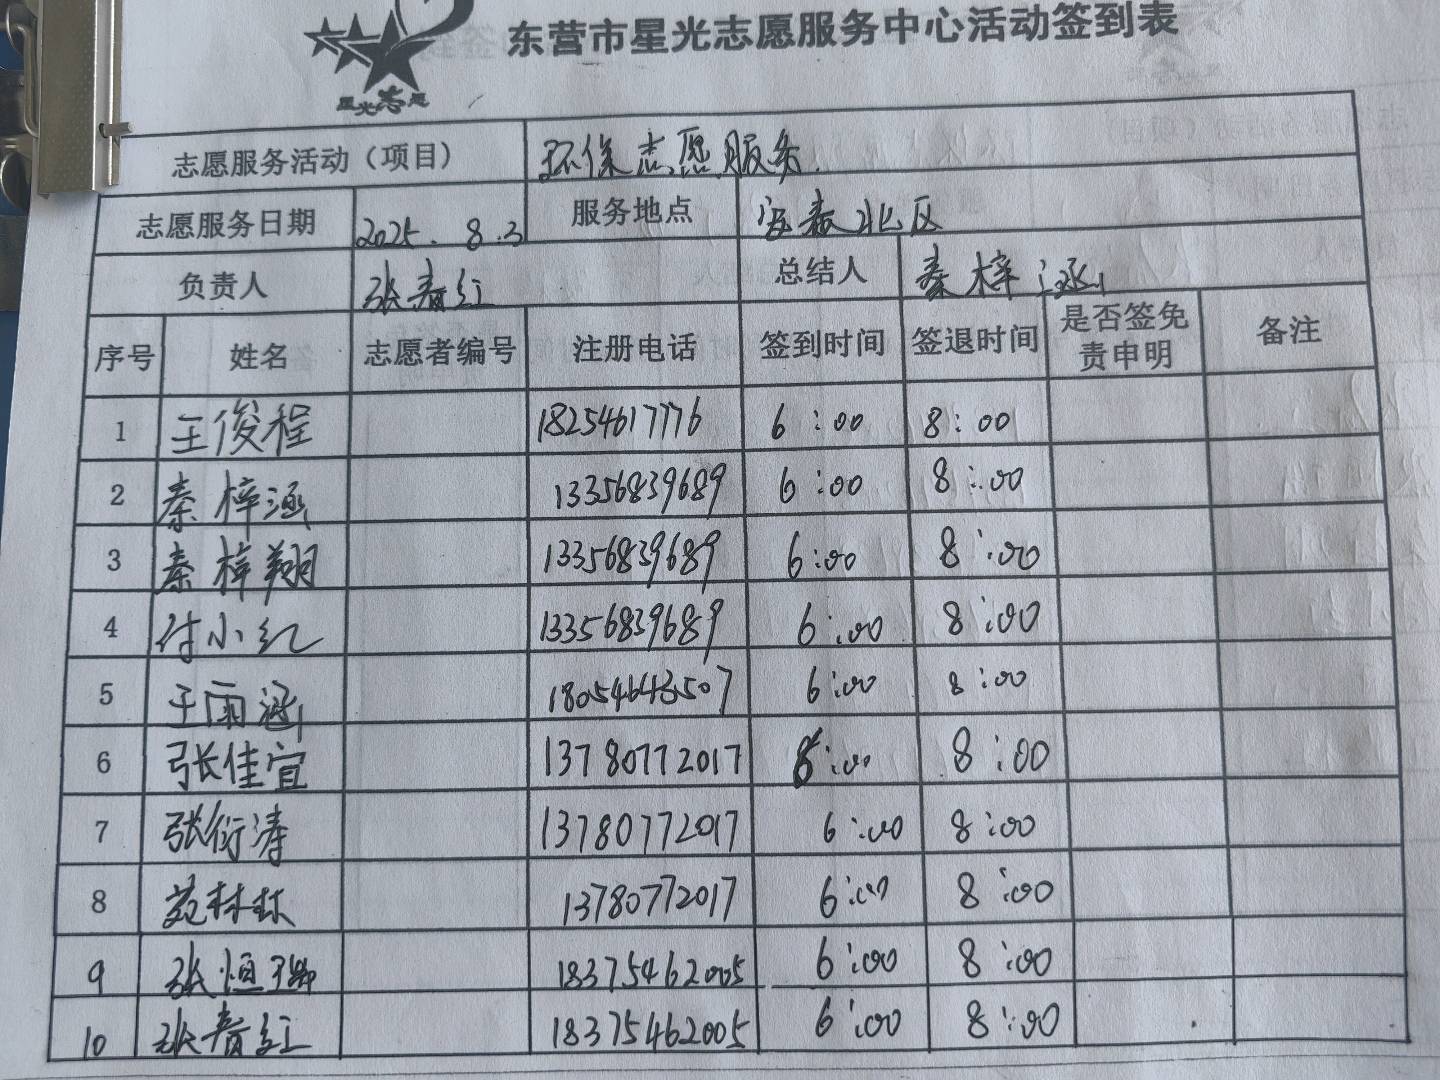 东营市星光志愿服务中心活动签到表
星光志愿
志愿服务活动（项目） 环保志愿服务
志愿服务日期 2025.8.3 服务地点 北区
负责人 张春红 总结人 秦梓涵
序号 姓名 志愿者编号 注册电话 签到时间 签退时间 是否签免责申明 备注
1 王俊程 18254617776 6:00 8:00
2 秦梓涵 13356839689 6:00 8:00
3 秦梓翔 13356839689 6:00 8:00
4 付小红 13356839689 6:00 8:00
5 于雨涵 18054643507 6:00 8:00
6 张佳宜 13780772017 6:00 8:00
7 张衍涛 13780772017 6:00 8:00
8 苑林林 13780772017 6:00 8:00
9 张恒 18375462005 6:00 8:00
10 张春红 18375462005 6:00 8:00